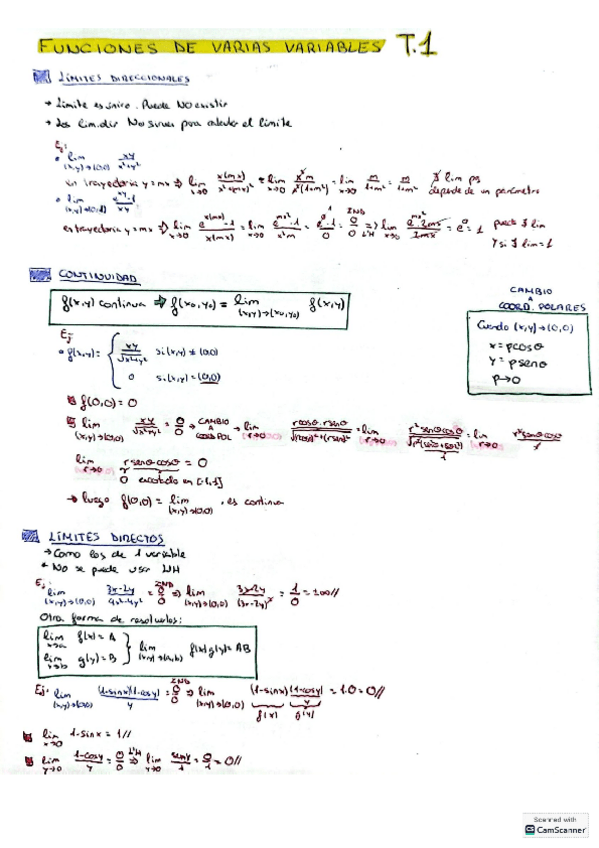 FUNCIONES DE VARIAS VARIABLES T.1
LÍMITES DIRECCIONALES
→ Límite es único. Puede NO existir
→ Los lim. dir NO sirven para calcular el límite
Ej:
• lim (x,y)→(0,0) xy/x²+y²
en trayectoria y=mx ⇒ lim x→0 x(mx)/x²+(mx)² = lim x→0 x²m/x²(1+m²) = lim x→0 m/1+m² = m/1+m² ∄ lim pq depende de un parámetro
• lim
en trayectoria y=mx ⇒ lim x→0 e^x(mx)-1/x(mx) = lim x→0 e^mx²-1/x²m = 0/0 IND ⇒ L'H lim x→0 = e⁰ = 1 puede ∃ lim
Y si ∃ lim=1
CONTINUIDAD
f(x,y) continua ⇒ f(x₀,y₀) = lim (x,y)→(x₀,y₀) f(x,y)
CAMBIO
A
COORD. POLARES
Cuando (x,y)→(0,0)
x=ρcosθ
y=ρsenθ
ρ→0
Ej
• f(x,y)= { xy/√x²+y² si (x,y)≠(0,0)
0 si (x,y)=(0,0)
f(0,0)=0
lim (x,y)→(0,0) xy/√x²+y² = 0/0 → CAMBIO A COORD POL → lim r→0 rcosθ·rsenθ/√(rcosθ)²+(rsenθ)² = lim r→0 r²senθcosθ/ = lim r→0
lim r→0 r senθcosθ = 0
0 acotado en [-1,1]
→ luego f(0,0) = lim (x,y)→(0,0), es continua
LÍMITES DIRECTOS
→ Como los de 1 variable
* No se puede usar L'H
Ej:
lim (x,y)→(0,0) = 0/0 IND ⇒ lim (x,y)→(0,0) = 1/0
Otra forma de resolverlos:
lim x→a f(x)=A
lim y→b g(y)=B } lim (x,y)→(a,b) f(x)g(y)=AB
Ej: lim (x,y)→(0,0) (1-sinx)(1-cosy)/y = 0/0 IND ⇒ lim (x,y)→(0,0) (1-sinx)(1-cosy)/y = 1·0=0//
f(x) g(y)
lim x→0 1-sinx = 1//
lim y→0 1-cosy/y = 0/0 L'H ⇒ lim y→0 siny/1 = 0/1 = 0//
Scanned with
CS CamScanner